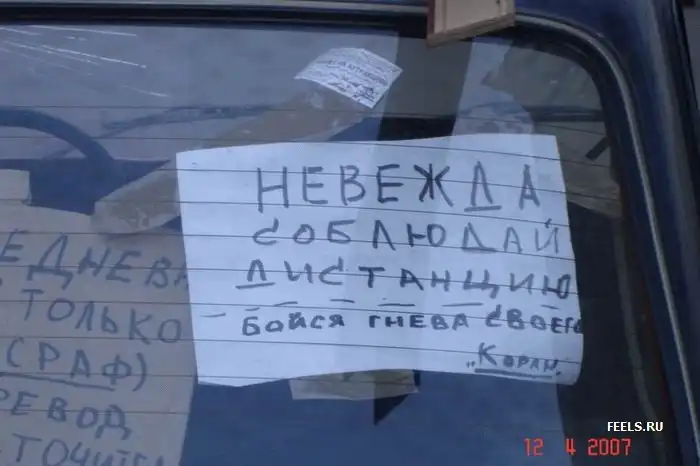 НЕВЕЖДА
СОБЛЮДАЙ
ДИСТАНЦИЮ
БОЙСЯ ГНЕВА СВОЕГО
„КОРАН"
ЕДНЕВА
ТОЛЬКО
СРАФ)
РЕВОД
ТОЧИТЕЛ
FEELS.RU
12 4 2007